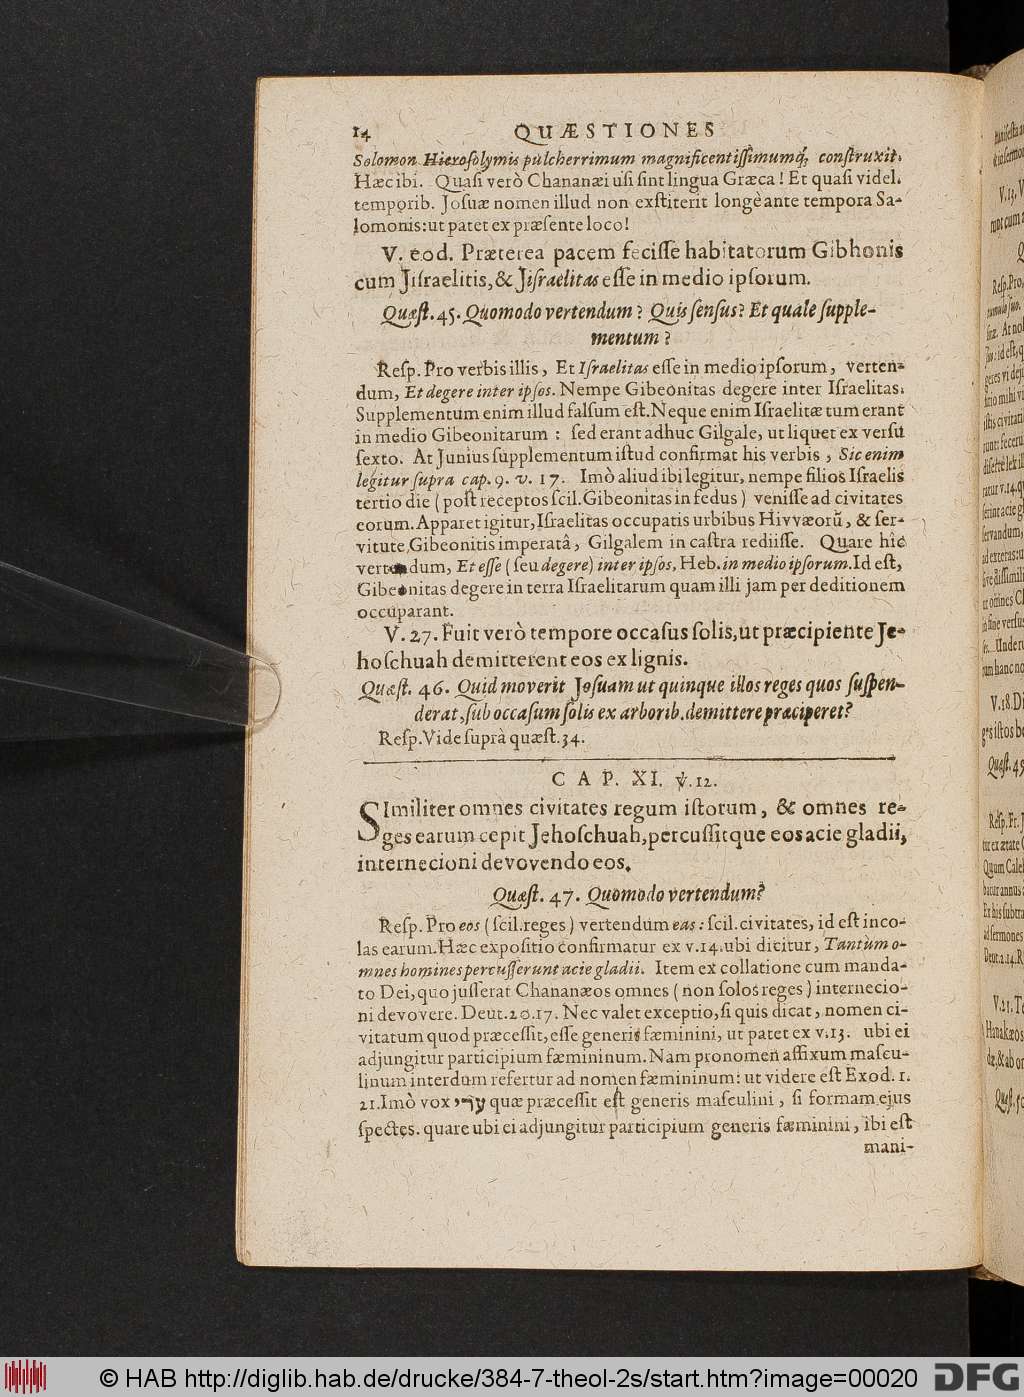 14 QUÆSTIONES
Solomon Hierosolymis pulcherrimum magnificentissimumq́, construxit.
Hæc ibi. Quasi verò Chananæi usi sint lingua Græca! Et quasi videl.
temporib. Josuæ nomen illud non exstiterit longè ante tempora Sa-
lomonis: ut patet ex præsente loco!
V. eod. Præterea pacem fecisse habitatorum Gibhonis
cum Jisraelitis, & Jisraelitas esse in medio ipsorum.
Quæst. 45. Quomodo vertendum? Quis sensus? Et quale supple-
mentum?
Resp. Pro verbis illis, Et Israelitas esse in medio ipsorum, verten-
dum, Et degere inter ipsos. Nempe Gibeonitas degere inter Israelitas.
Supplementum enim illud falsum est. Neque enim Israelitæ tum erant
in medio Gibeonitarum: sed erant adhuc Gilgale, ut liquet ex versu
sexto. At Junius supplementum istud confirmat his verbis, Sic enim
legitur supra cap. 9. v. 17. Imò aliud ibi legitur, nempe filios Israelis
tertio die (post receptos scil. Gibeonitas in fedus) venisse ad civitates
eorum. Apparet igitur, Israelitas occupatis urbibus Hivvæorũ, & ser-
vitute Gibeonitis imperatâ, Gilgalem in castra rediisse. Quare hîc
vertendum, Et esse (seu degere) inter ipsos, Heb. in medio ipsorum. Id est,
Gibeonitas degere in terra Israelitarum quam illi jam per deditionem
occuparant.
V. 27. Fuit verò tempore occasus solis, ut præcipiente Je-
hoschuah demitterent eos ex lignis.
Quæst. 46. Quid moverit Josuam ut quinque illos reges quos suspen-
derat, sub occasum solis ex arborib. demittere præciperet?
Resp. Vide suprà quæst. 34.
CAP. XI. ℣. 12.
SImiliter omnes civitates regum istorum, & omnes re-
ges earum cepit Jehoschuah, percussitque eos acie gladii,
internecioni devovendo eos.
Quæst. 47. Quomodo vertendum?
Resp. Pro eos (scil. reges) vertendum eas: scil. civitates, id est inco-
las earum. Hæc expositio confirmatur ex v. 14. ubi dicitur, Tantùm o-
mnes homines percusserunt acie gladii. Item ex collatione cum manda-
to Dei, quo jusserat Chananæos omnes (non solos reges) internecio-
ni devovere. Deut. 20. 17. Nec valet exceptio, si quis dicat, nomen ci-
vitatum quod præcessit, esse generis fæminini, ut patet ex v. 13. ubi ei
adjungitur participium fæmininum. Nam pronomen affixum mascu-
linum interdum refertur ad nomen fæmininum: ut videre est Exod. 1.
21. Imò vox ערי quæ præcessit est generis masculini, si formam ejus
spectes. quare ubi ei adjungitur participium generis fæminini, ibi est
mani-
© HAB http://diglib.hab.de/drucke/384-7-theol-2s/start.htm?image=00020
DFG